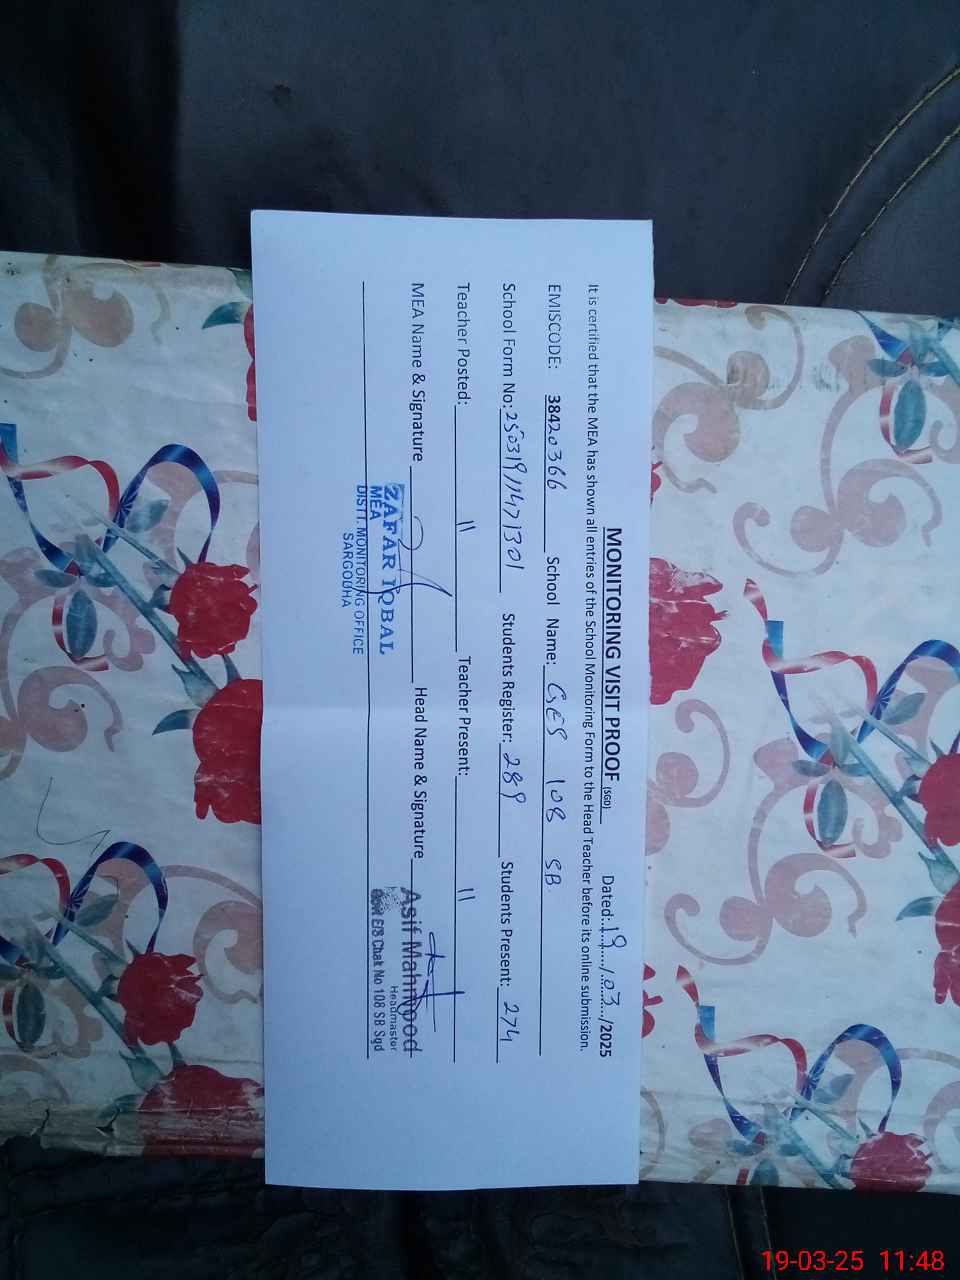 MONITORING VISIT PROOF (SGD) Dated: 19/03/2025
It is certified that the MEA has shown all entries of the School Monitoring Form to the Head Teacher before its online submission.
EMISCODE: 38420366 School Name: GES 108 SB
School Form No: 25031911471301 Students Register: 289 Students Present: 274
Teacher Posted: 11 Teacher Present: 11
MEA Name & Signature Head Name & Signature
ZAFAR IQBAL
MEA
DISTT. MONITORING OFFICE
SARGODHA
Asif Mahmood
Headmaster
Govt E/S Chak No 108 SB Sgd
19-03-25 11:48